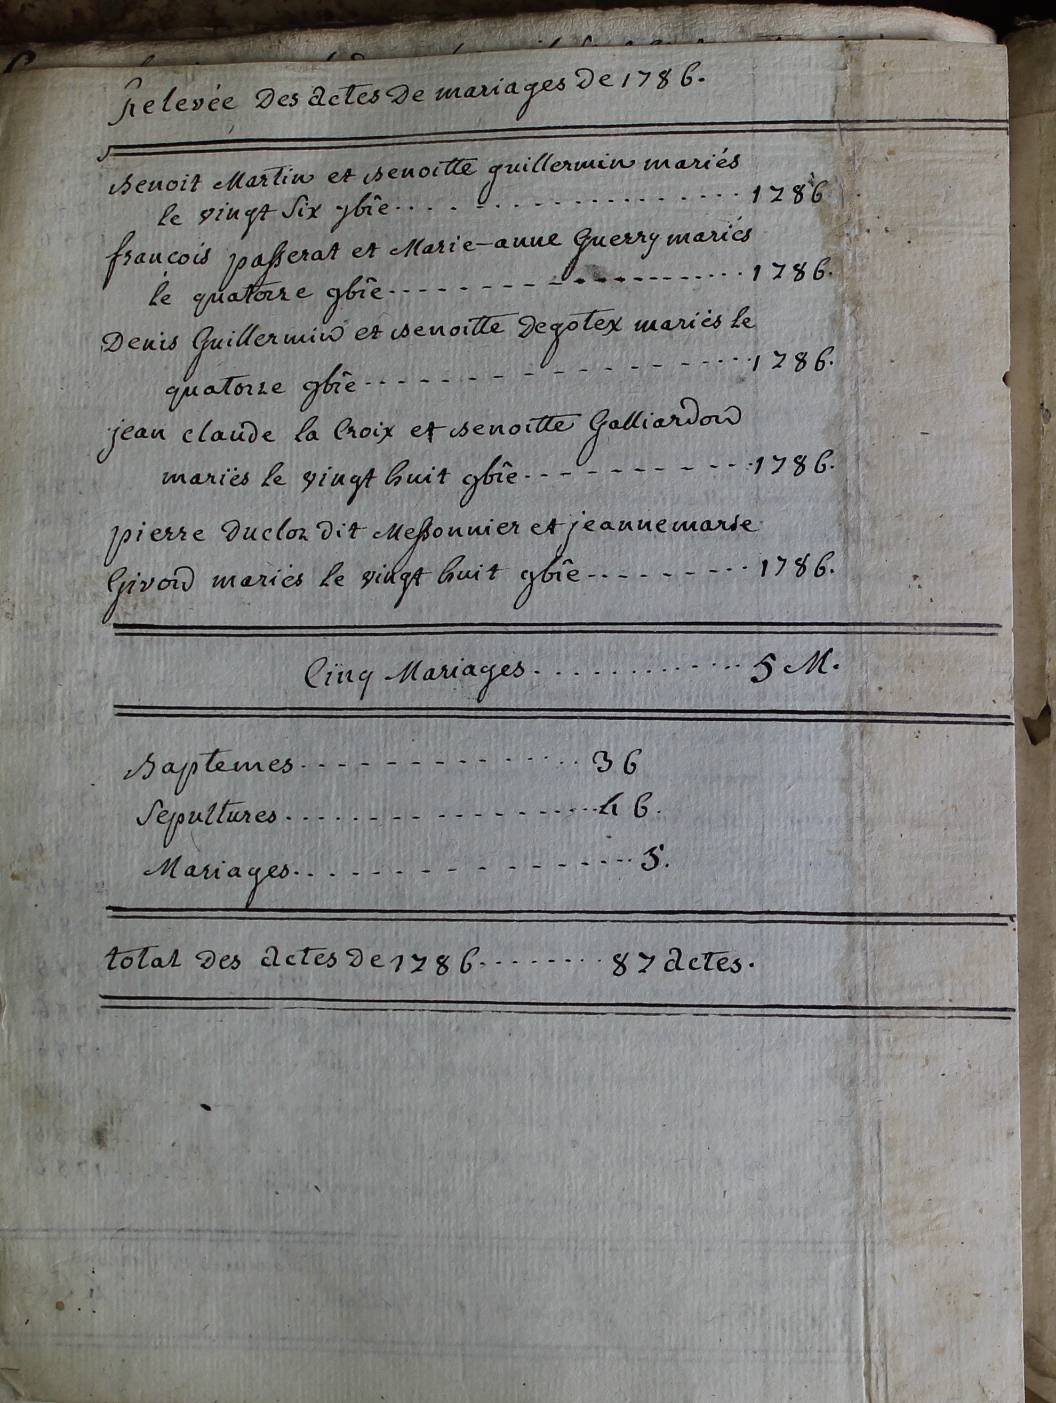 Relevée Des Actes De mariages De 1786.
Benoit Martin et Benoitte guillermin mariés
le vingt Six 7bre 1786
françois passerat et Marie-anne Guerry mariés
le quatorze 9bre 1786.
Denis Guillermin et Benoitte Degotex mariés le
quatorze 9bre 1786.
jean claude la Croix et Benoitte Galliardon
mariés le vingt huit 9bre 1786.
pierre Ducloz dit Messonnier et jeanne marie
Givord mariés le vingt huit 9bre 1786.
Cinq Mariages 5 M.
Baptemes 36
Sepultures 46.
Mariages 5.
total Des Actes De 1786 87 Actes.